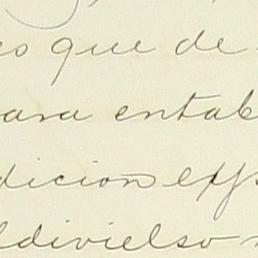 que de
para entab
dicion
ldivielso